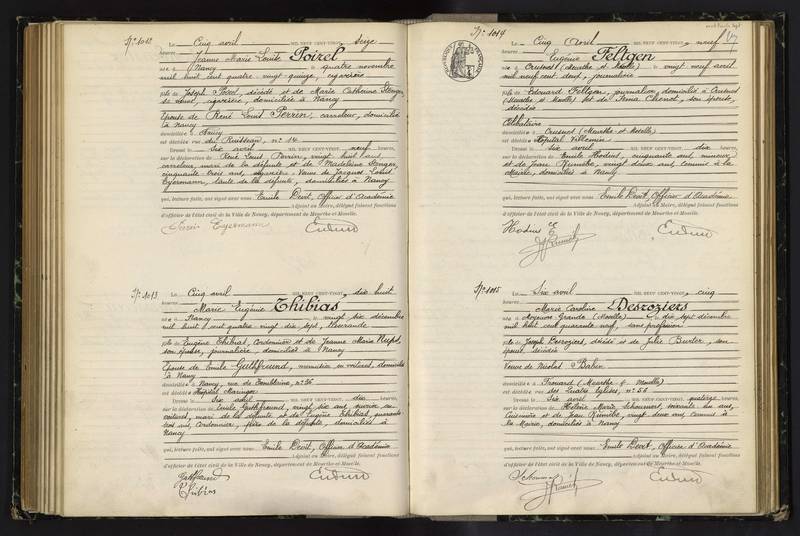 N° 1012 Le Cinq avril MIL NEUF CENT-VINGT, Seize
heures, Jeanne Marie Louise Poirel
né à Nancy le quatre novembre
mil huit cent quatre-vingt-quinze, cigarière
fille de Joseph Poirel, décédé et de Marie Catherine Stenger
sa veuve, cigarière, domiciliée à Nancy
Épouse de René Louis Perrin, camelon, domicilié
à Nancy
domiciliée à Nancy
est décédée rue du Ruisseau, n° 14
Dressé le Six avril neuf heures
sur la déclaration de René Louis Perrin, vingt huit ans
mari de la défunte et de Madeleine Stenger,
cinquante trois ans, Veuve de Jacques Louis
Eyermann, tante de la défunte, domiciliés à Nancy
qui, lecture faite, ont signé avec nous Emile Devit, Officier d'Académie
Adjoint au Maire, délégué faisant fonctions
d'officier de l'état civil de la Ville de Nancy, département de Meurthe-et-Moselle.
Eyermann
N° 1013 Le Cinq avril MIL NEUF CENT-VINGT, dix huit
heures, Marie Eugénie Thibias
née à Nancy le vingt six décembre
mil huit cent quatre vingt dix sept,
fille de Eugène Thibias, Cordonnier et de Jeanne Marie
son épouse, journalière, domiciliés à Nancy
Épouse de Emile Guthfreund, domicilié
à Nancy
domiciliée à Nancy, rue de Tomblaine, n° 36
est décédée Hôpital Maringer
Dressé le Six avril dix heures
sur la déclaration de Emile Guthfreund, vingt six ans,
mari de la défunte et de Eugène Thibias, quarante
trois ans, Cordonnier, père de la défunte, domiciliés à
Nancy
qui, lecture faite, ont signé avec nous Emile Devit, Officier d'Académie
Adjoint au Maire, délégué faisant fonctions
d'officier de l'état civil de la Ville de Nancy, département de Meurthe-et-Moselle.
Thibias
N° 1014 Le Cinq Avril MIL NEUF CENT-VINGT, neuf
heures, Eugénie Feltgen
née à Crusnes (Meurthe et Moselle) le vingt neuf avril
mil neuf cent deux, journalière
fille de Edouard Feltgen, journalier, domicilié à Crusnes
(Meurthe et Moselle) et de Anna Chenot, son épouse,
décédée
Célibataire
domiciliée à Crusnes (Meurthe et Moselle)
est décédée Hôpital Villemin
Dressé le Six avril dix heures
sur la déclaration de Emile Hodius, cinquante ans, mineur
et de Jean Rimette, vingt deux ans, commis à la
Mairie, domiciliés à Nancy
qui, lecture faite, ont signé avec nous Emile Devit, Officier d'Académie
Adjoint au Maire, délégué faisant fonctions
d'officier de l'état civil de la Ville de Nancy, département de Meurthe-et-Moselle.
Hodius
N° 1015 Le Six avril MIL NEUF CENT-VINGT, cinq
heures, Marie Caroline Desroziers
née à Moyeuvre Grande (Moselle) le dix sept décembre
mil huit cent quarante neuf, sans profession
fille de Joseph Desroziers, décédé et de Julie Burter, son
épouse, décédée
Veuve de Nicolas Babin
domiciliée à Frouard (Meurthe & Moselle)
est décédée rue des Quatre Eglises, n° 53
Dressé le Six avril quatorze heures
sur la déclaration de Hélène Marie Schoumert, soixante un ans,
et de Jean Rimette, vingt deux ans, Commis à
la Mairie, domiciliés à Nancy
qui, lecture faite, ont signé avec nous Emile Devit, Officier d'Académie
Adjoint au Maire, délégué faisant fonctions
d'officier de l'état civil de la Ville de Nancy, département de Meurthe-et-Moselle.